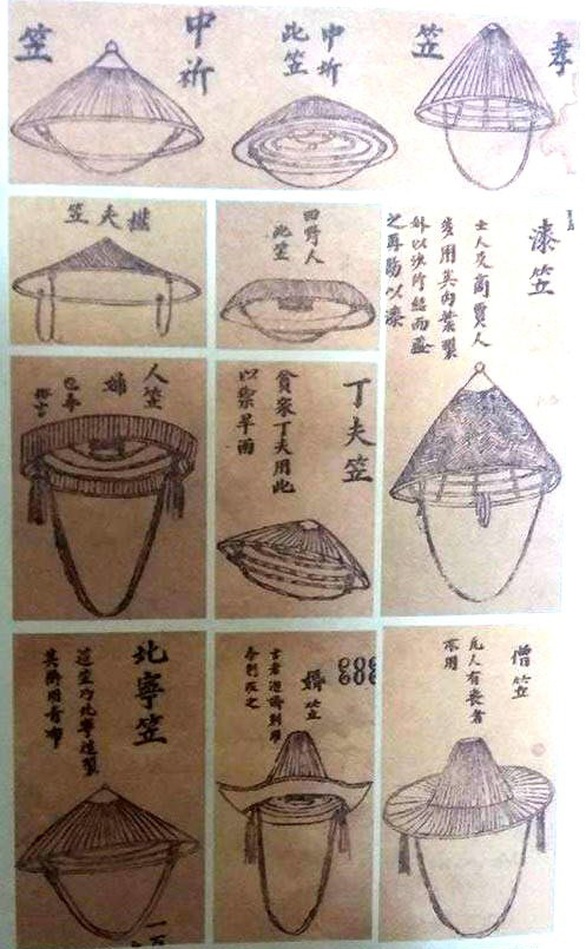 中祈
笠
中祈
此笠
笠
樵夫笠
田野人
此笠
漆笠
士人及商賈人
多用其內葉製
外以 竹結而蓋
之再 以漆
人笠
婦
丁夫笠
貧家丁夫用此
以禦旱雨
北寧笠
這笠乃北寧造製
其 用青布
婚笠
古者迎婚則用
今則反之
僧笠
凡人有喪者
亦用